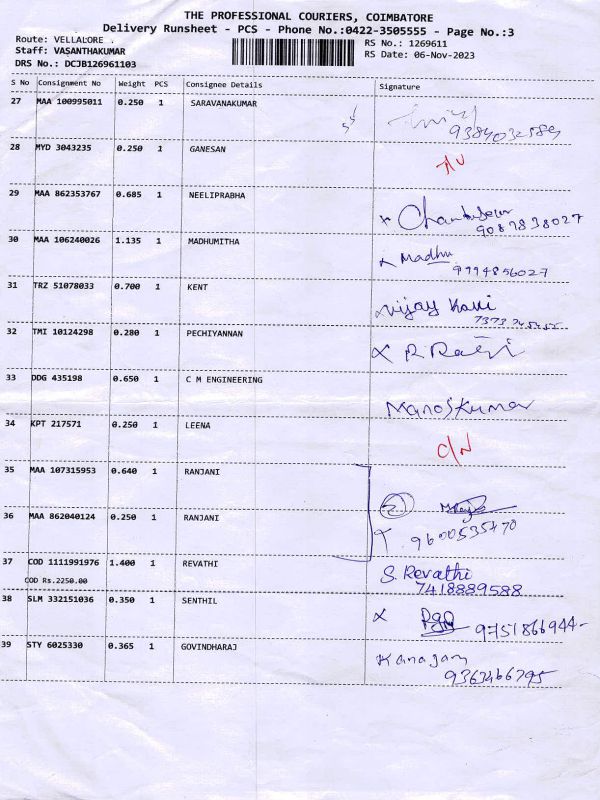 THE PROFESSIONAL COURIERS, COIMBATORE
Delivery Runsheet - PCS - Phone No.:0422-3505555 - Page No.:3
Route: VELLALORE
Staff: VASANTHAKUMAR
DRS No.: DCJB126961103
RS No.: 1269611
RS Date: 06-Nov-2023
S No Consignment No Weight PCS Consignee Details Signature
27 MAA 100995011 0.250 1 SARAVANAKUMAR
9384032589
28 MYD 3043235 0.250 1 GANESAN
29 MAA 862353767 0.685 1 NEELIPRABHA
9087838027
30 MAA 106240026 1.135 1 MADHUMITHA
x Madhu
9994856027
31 TRZ 51078033 0.700 1 KENT
Vijay Kavi
32 TMI 10124298 0.280 1 PECHIYANNAN
x P. Ravi
33 DDG 435198 0.650 1 C M ENGINEERING
Manoj Kumar
34 KPT 217571 0.250 1 LEENA
35 MAA 107315953 0.640 1 RANJANI
36 MAA 862040124 0.250 1 RANJANI
9600535470
37 COD 1111991976 1.400 1 REVATHI
COD Rs.2250.00
S. Revathi
7418889588
38 SLM 332151036 0.350 1 SENTHIL
x 9751866944
39 STY 6025330 0.365 1 GOVINDHARAJ
9363466795